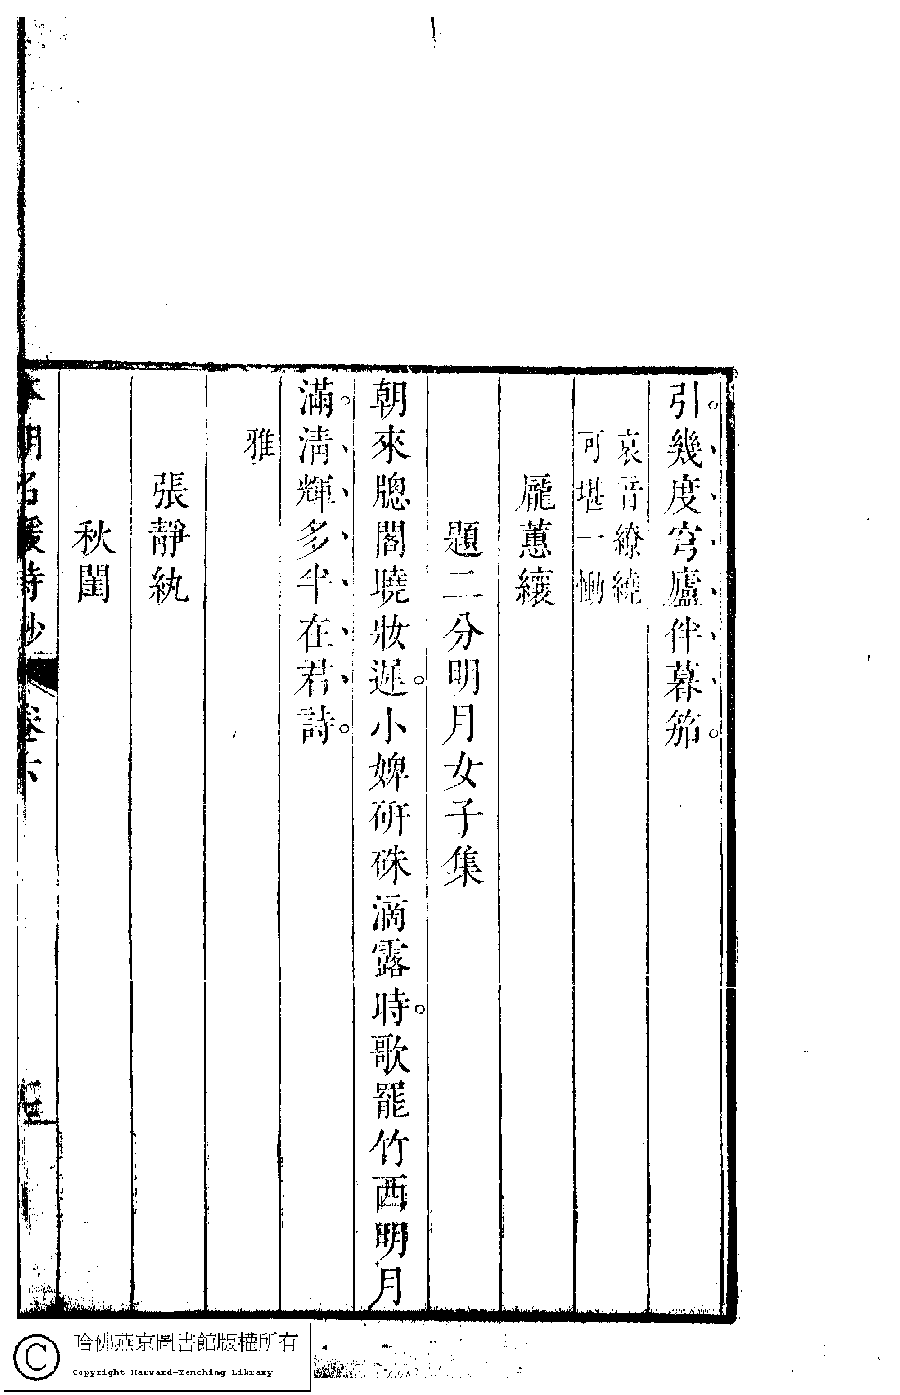 引。幾度穹廬伴暮笳。
哀音繚繞
可堪一慟
龐蕙纕
題二分明月女子集
朝來牕閣曉妝遲。小婢研硃滴露時。歌罷竹西明月
滿。清輝多半在君詩。
雅
張靜紈
秋閨
本朝名媛詩鈔
卷六
哈佛燕京圖書館版權所有
Copyright Harvard-Yenching Library